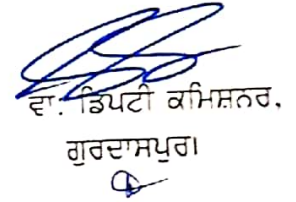 ਵਾ. ਡਿਪਟੀ ਕਮਿਸ਼ਨਰ,
ਗੁਰਦਾਸਪੁਰ।